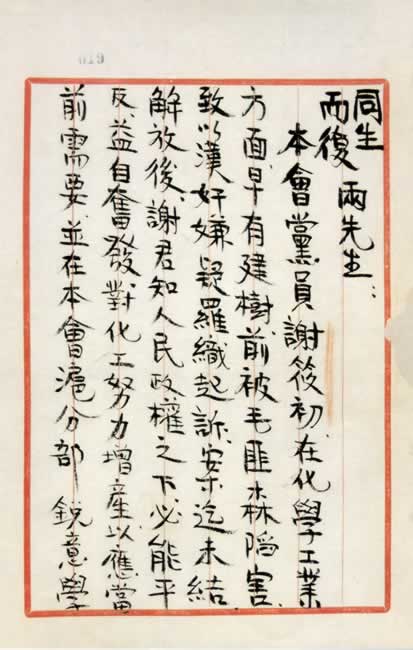 同生
而復 兩先生：
本會黨員謝筱初在化學工業
方面、早有建樹、前被毛匪森陷害、
致以漢奸嫌疑羅織起訴、案迄未結、
解放後、謝君知人民政權之下、必能平
反、益自奮發、對化工努力增產、以應當
前需要、並在本會滬分部 銳意學